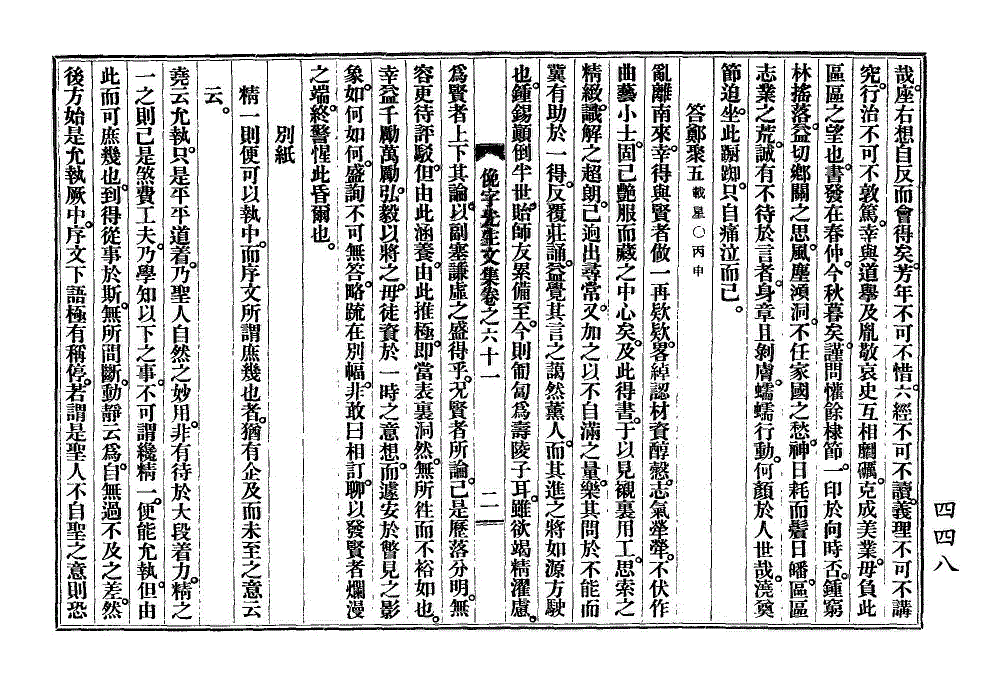 哉。座右想自反而會得矣。芳年不可不惜。六經不可不讀。義理不可不講
究。行治不可不敦篤。幸與道擧及胤敬哀史互相劘礪。克成美業。毋負此
區區之望也。書發在春仲。今秋暮矣。謹問懽餘棣節。一印於向時否。鍾窮
林搖落。益切鄕關之思。風塵澒洞。不任家國之愁。神日耗而鬢日皤。區區
志業之荒。誠有不待於言者。身章且剝膚。蠕蠕行動。何顏於人世哉。澆奠
節迫。坐此跼踟。只自痛泣而已。
答鄭聚五 載星○丙申
亂離南來。幸得與賢者做一再欵。欵畧綽認材資醇慤。志氣犖犖。不伏作
曲藝小士。固已艶服而藏之中心矣。及此得書。于以見襯裏用工。思索之
精緻。識解之超朗。已逈出尋常。又加之以不自滿之量。樂其問於不能而
冀有助於一得。反覆莊誦。益覺其言之藹然薰人。而其進之將如源方駛
也。鍾錫顚倒半世。貽師友累備至。今則匍匐爲壽陵子耳。雖欲竭精濯慮。
俛宇先生文集卷之六十一 二
爲賢者上下其論。以副塞謙虛之盛得乎。况賢者所論。已是歷落分明。無
容更待評駁。但由此涵養。由此推極。卽當表裏洞然。無所徃而不裕如也。
幸益千勵萬勵。弘毅以將之。毋徒資於一時之意想。而遽安於瞥見之影
象。如何如何。盛詢不可無答。略疏在別幅。非敢曰相訂。聊以發賢者爛漫
之端。終警惺此昏爾也。
別紙
精一則便可以執中。而序文所謂庶幾也者。猶有企及而未至之意云
云。
堯云允執。只是平平道着。乃聖人自然之妙用。非有待於大段着力。精之
一之則已是煞費工夫。乃學知以下之事。不可謂纔精一。便能允執。但由
此而可庶幾也。到得從事於斯。無所間斷。動靜云爲。自無過不及之差。然
後方始是允執厥中。序文下語極有稱停。若謂是聖人不自聖之意則恐
四四八